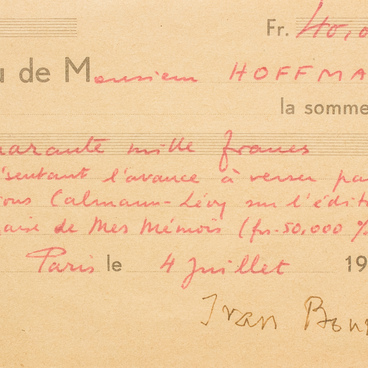 Fr. 40,0
u de Monsieur HOFFMA
la somme
uarante mille francs
ésentant l'avance à verser pa
ions Calmann-Lévy sur l'édit
aise de Mes Mémoirs (frs-50,000 %
Paris le 4 Juillet 19
Ivan Boun